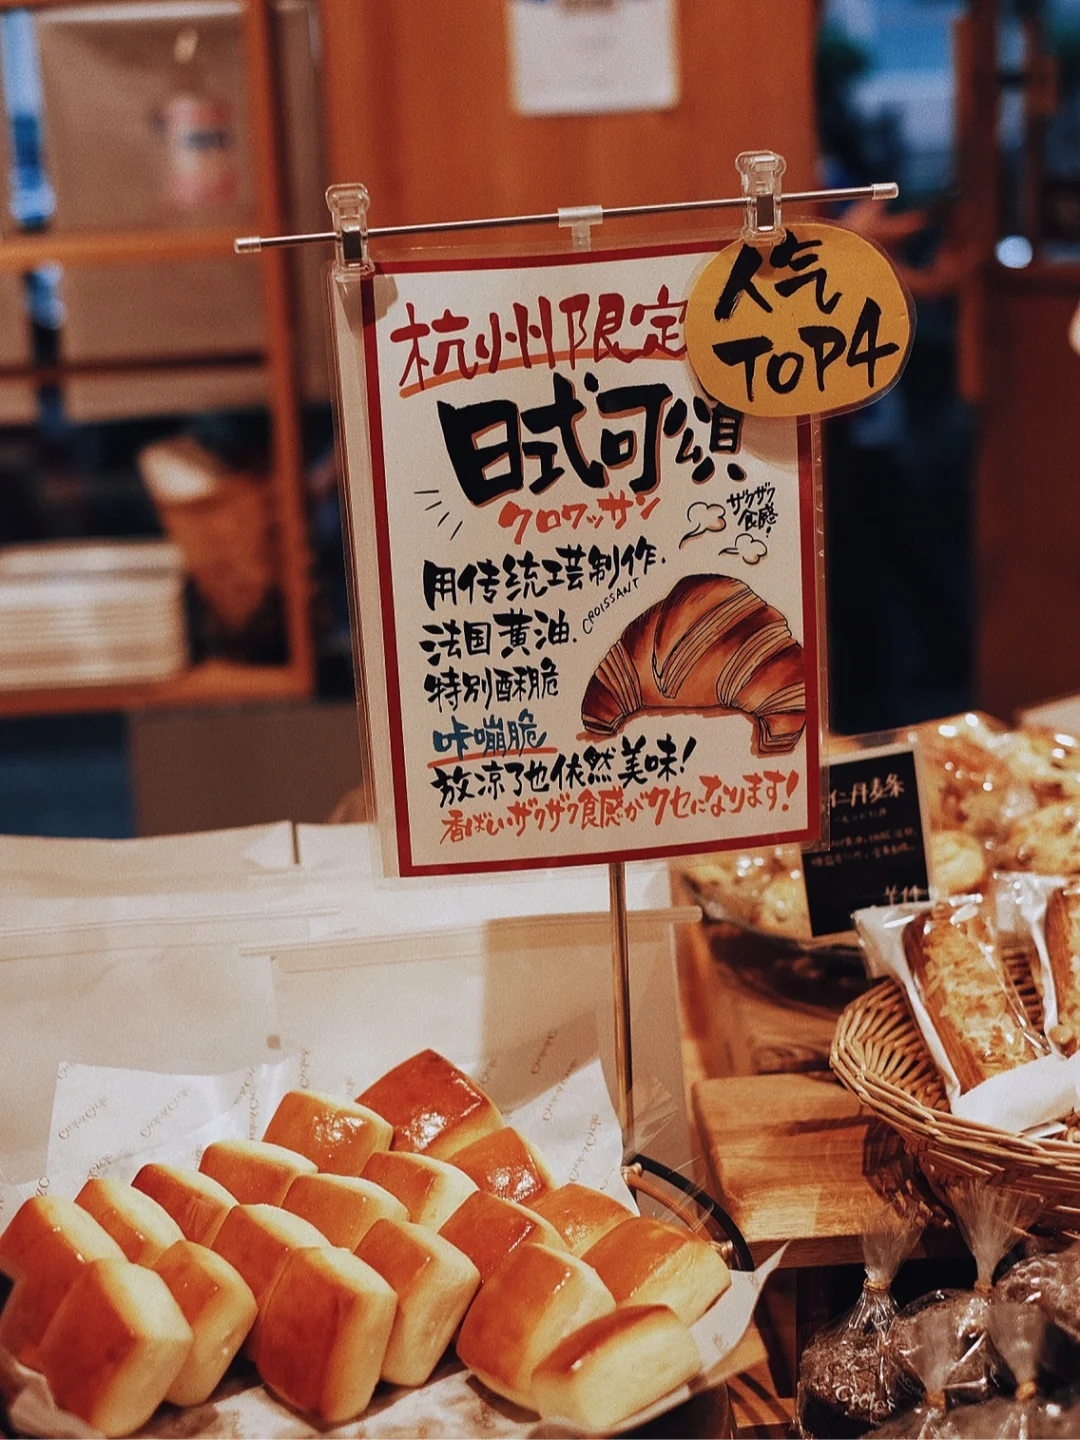 人气
TOP4
杭州限定
日式可頌
クロワッサン
ザクザク
食感!
用传统工芸制作.
CROISSANT
法国黄油.
特别酥脆
咔嘣脆
放凉了也依然美味!
香ばしいザクザク食感がクセになります!
仁丹麦条